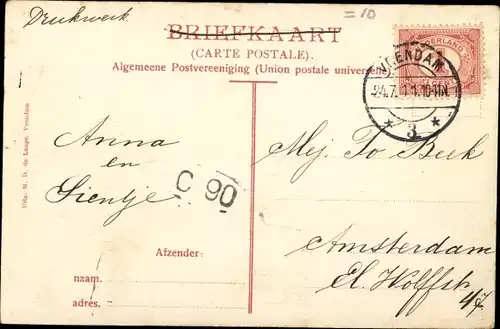 Drukwerk
= 10
BRIEFKAART
(CARTE POSTALE).
Algemeene Postvereeniging (Union postale universelle)
NEDERLAND
24.7.11. 10-11N.
* 3 *
Anna
en
Sientje
C 90
Mej. To Beek
Amsterdam
El. Wolffstr.
47
Afzender:
naam.
adres.
Uitg. M. D. de Lange, Veendam